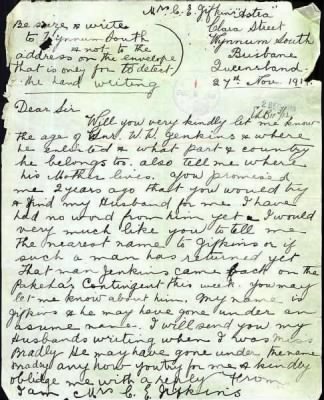 Mrs C. E. Gifkins "Astra"
Clara Street
Wynnum South
Brisbane
Queensland.
27th Nov. 191
Be sure & write
to Wynnum South
& not to the
address on the envelope
that is only for to detect
the hand writing
Dear Sir
Will you very kindly let me know
the age of Gnr. W. L. Jenkins & where
he enlisted & what part & country
he belongs to. also tell me where
his Mother lives. You promised
me 2 years ago that you would try
& find my Husband for me I have
had no word from him yet & I would
very much like you to tell me
the nearest name to Gifkins or if
such a man has returned yet
That man Jenkins came back on the
Pakeha's Contingent this week. you may
let me know about him. My name is
Gifkins & he may have gone under an
asume name. I will send you my
Husbands writing when I was Miss
Bradly He may have gone under the name
Bradly any how you try for me & kindly
oblidge me with a reply From
I am Mrs C E Gifkins